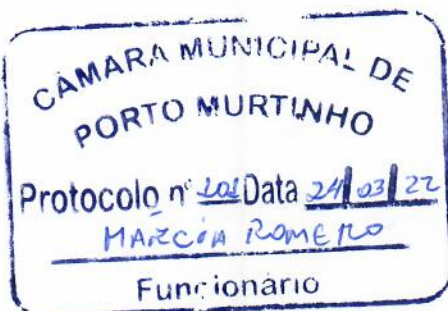 CÂMARA MUNICIPAL DE
PORTO MURTINHO
Protocolo nº 101 Data 24/03/22
MARCIA ROMERO
Funcionário